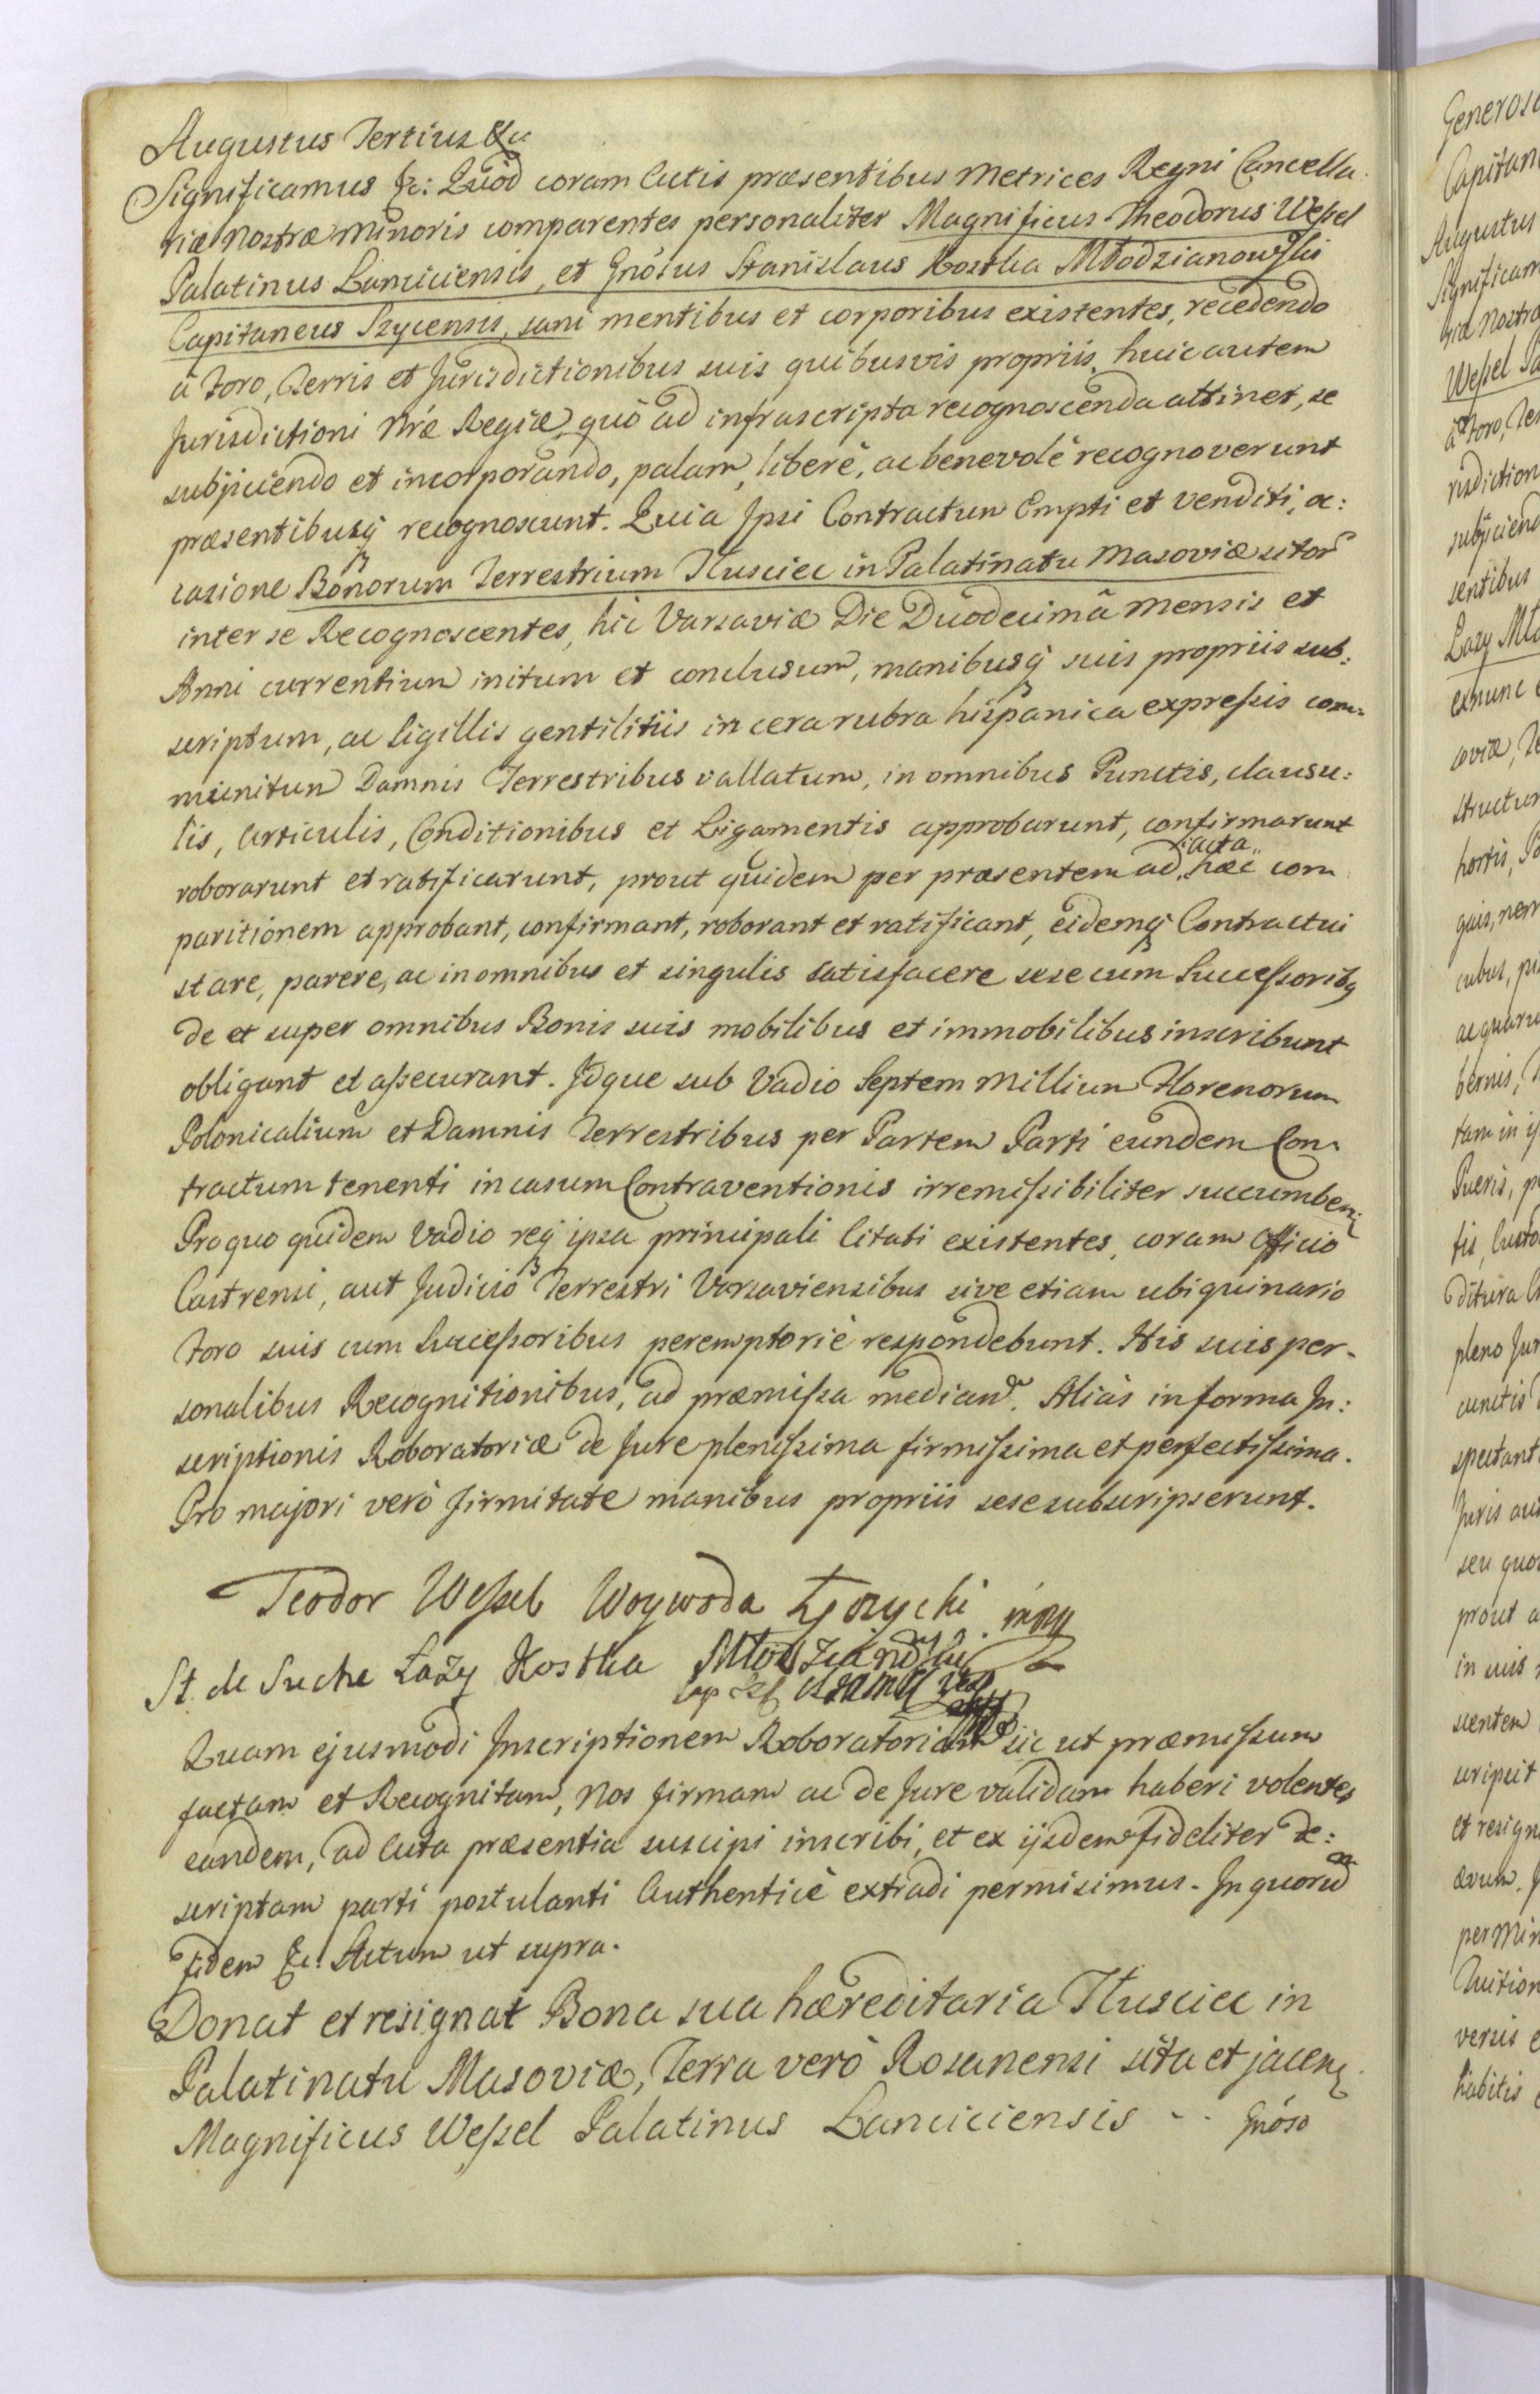 Augustus Tertius &c
Significamus &c: Quod coram Actis præsentibus Metrices Regni Cancella-
riæ Nostræ Minoris comparentes personaliter Magnificus Theodorus Weſsel
Palatinus Lanciciensis, et Gnôsus Stanislaus Kostka Młodzianowſski
Capitaneus Szycensis, sani mentibus et corporibus existentes, recedendo
à Foro, Terris et Jurisdictionibus suis quibusvis propriis, huic autem
Jurisdictioni Nrǽ Regiæ, quò ad infrascripta recognoscenda attinet, se
subjiciendo et incorporando, palam, liberè, ac benevolè recognoverunt
præsentibusq recognoscunt. Quia Ipsi Contractum Empti et Venditi, oc:
casione Bonorum Terrestrium Tłusciec in Palatinatu Masoviæ sitor
inter se Recognoscentes, hic Varsaviæ Die Duodecimâ Mensis et
Anni currentium initum et conclusum, manibusq suis propriis sub:
scriptum, ac Sigillis gentilitiis in cera rubra hispanica expreſsis com:
munitum Damnis Terrestribus vallatum, in omnibus Punctis, clausu:
lis, Articulis, Conditionibus et Ligamentis approbarunt, confirmarunt
roborarunt et ratificarunt, prout quidem per præsentem ad acta hæc com
paritionem approbant, confirmant, roborant et ratificant, eidemq Contractui
stare, parere, ac in omnibus et singulis satisfacere sese cum Succeſsoribq
de et super omnibus Bonis suis mobilibus et immobilibus inscribunt
obligant et aſsecurant. Idque sub Vadio Septem Millium Florenorum
Polonicalium et Damnis Terrestribus per Partem Parti eundem Con-
tractum tenenti in casum Contraventionis irremiſsibiliter succumben:
Pro quo quidem Vadio req ipsa principali Citati existentes, coram Officio
Castrensi, aut Judicio Terrestri Varsaviensibus sive etiam ubiquinario
Foro suis cum Succeſsoribus peremptoriè respondebunt. His suis per-
sonalibus Recognitionibus, ad præmiſsa median. Aliàs in forma In:
scriptionis Roboratoriæ de Jure pleniſsima firmiſsima et perfectiſsima.
Pro majori verò firmitate manibus propriis sese subscripserunt.
Teodor Weſsel Woywoda Łęczycki mpp
St. de Suche Łazy Kostka Młodzianowſki
Quam ejusmodi Inscriptionem Roboratoriam sic ut præmiſsum
factam et Recognitam, Nos firmam ac de Jure validam haberi volentes
eandem, ad Acta præsentia suscipi inscribi, et ex ijsdem fideliter de:
scriptam parti postulanti Authenticè extradi permisimus. In quorũ
fidem &c. Actum ut supra.
Donat et resignat Bona sua hæreditaria Tłusciec in
Palatinatu Masoviæ, Terra verò Rosanensi sita et jacen
Magnificus Weſsel Palatinus Lanciciensis - - Gnôso